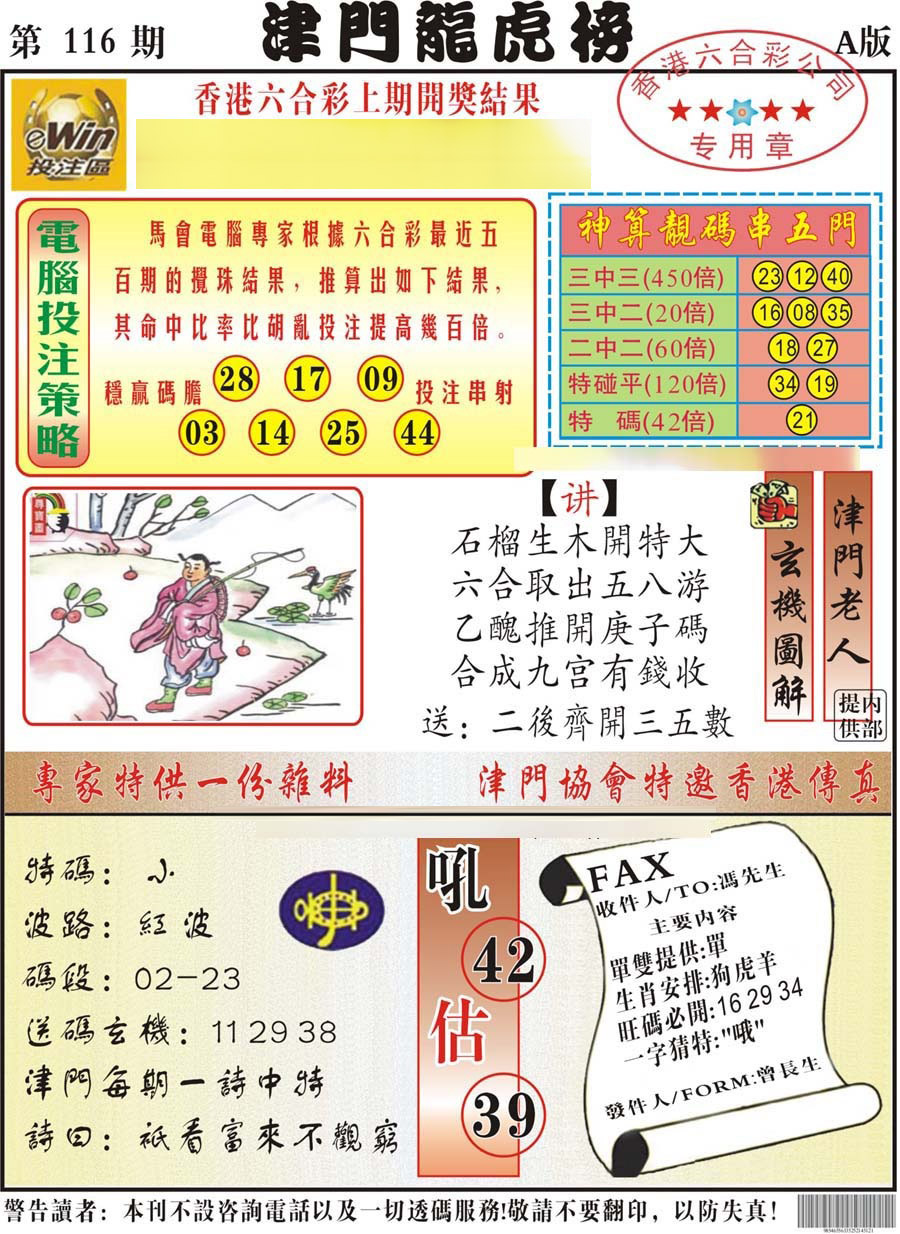 第 116 期
津門龍虎榜
A版
香港六合彩公司
专用章
eWin
投注區
香港六合彩上期開獎結果
電腦投注策略
馬會電腦專家根據六合彩最近五
百期的攪珠結果，推算出如下結果，
其命中比率比胡亂投注提高幾百倍。
穩贏碼膽 28 17 09 投注串射
03 14 25 44
神算靚碼串五門
三中三(450倍) 23 12 40
三中二(20倍) 16 08 35
二中二(60倍) 18 27
特碰平(120倍) 34 19
特 碼(42倍) 21
尋寶圖
【讲】
石榴生木開特大
六合取出五八游
乙醜推開庚子碼
合成九宫有錢收
送：二後齊開三五數
玄機圖解
津門老人
内部提供
專家特供一份雜料
津門協會特邀香港傳真
特碼：小
波路：紅波
碼段：02-23
送碼玄機：11 29 38
津門每期一詩中特
詩曰：祇看富來不觀窮
吼
42
估
39
FAX
收件人/TO:馮先生
主要内容
單雙提供:單
生肖安排:狗虎羊
旺碼必開:16 29 34
一字猜特:"哦"
發件人/FORM:曾長生
警告讀者：本刊不設咨詢電話以及一切透碼服務!敬請不要翻印，以防失真！